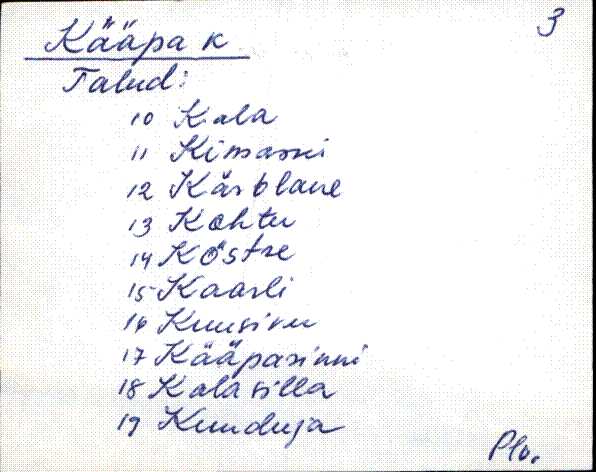 3
Kääpa k
Talud:
10 Kala
11 Kimassi
12 Kärblane
13 Kohtu
14 Köstre
15 Kaarli
16 Kuusiru
17 Kääpasinni
18 Kalasilla
19 Kunduja
Plv.